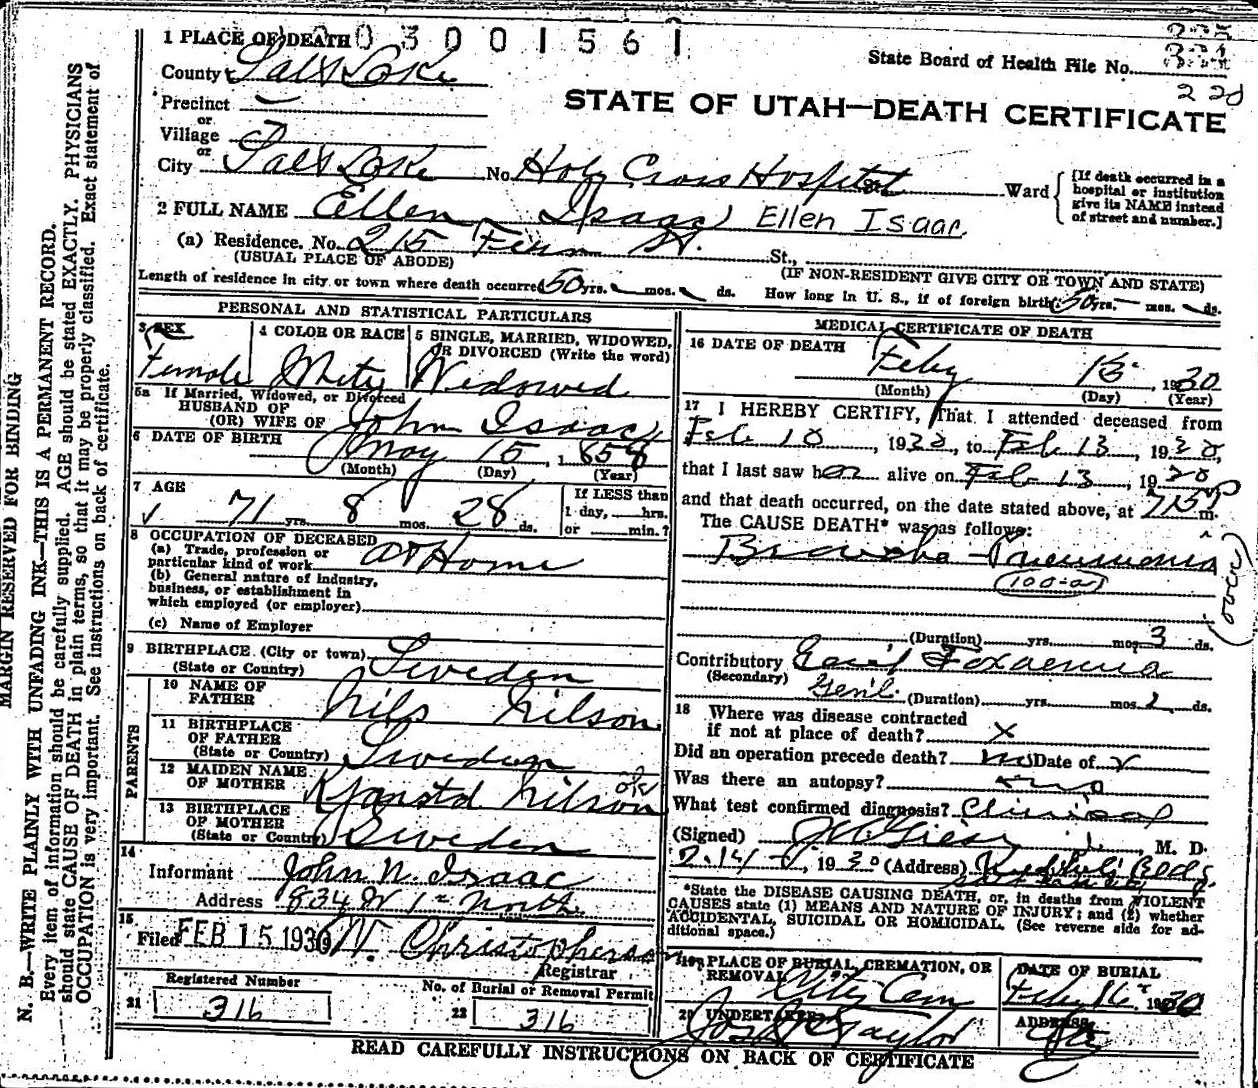 1 PLACE OF DEATH 0 3 0 0 1 5 6 1
State Board of Health File No.
2 20
County Salt Lake
STATE OF UTAH—DEATH CERTIFICATE
Precinct
or
Village
or
City Salt Lake No Holy Cross Hospital St. Ward
[If death occurred in a
hospital or institution
give its NAME instead
of street and number.]
2 FULL NAME Ellen Isaac Ellen Isaac
(a) Residence. No. 215 Fern St. St.,
(USUAL PLACE OF ABODE) (IF NON-RESIDENT GIVE CITY OR TOWN AND STATE)
Length of residence in city or town where death occurred 50 yrs. mos. ds. How long in U. S., if of foreign birth: 50 yrs. mos. ds.
PERSONAL AND STATISTICAL PARTICULARS
3 SEX 4 COLOR OR RACE 5 SINGLE, MARRIED, WIDOWED,
OR DIVORCED (Write the word)
Female White Widowed
5a If Married, Widowed, or Divorced
HUSBAND OF
(OR) WIFE OF John Isaac
6 DATE OF BIRTH May 15, 1858
(Month) (Day) (Year)
7 AGE
71 yrs. 8 mos. 28 ds.
If LESS than
1 day, hrs.
or min.?
8 OCCUPATION OF DECEASED
(a) Trade, profession or
particular kind of work at Home
(b) General nature of industry,
business, or establishment in
which employed (or employer)
(c) Name of Employer
9 BIRTHPLACE (City or town)
(State or Country) Sweden
PARENTS
10 NAME OF
FATHER Nils Nilson
11 BIRTHPLACE
OF FATHER
(State or Country) Sweden
12 MAIDEN NAME
OF MOTHER Nilson
13 BIRTHPLACE
OF MOTHER
(State or Country) Sweden
14
Informant John N. Isaac
Address 834 W 1st North
15
Filed FEB 15 1930 W. Christopherson
Registrar
Registered Number No. of Burial or Removal Permit
21 316 22 316
MEDICAL CERTIFICATE OF DEATH
16 DATE OF DEATH Feby 13, 1930
(Month) (Day) (Year)
17 I HEREBY CERTIFY, That I attended deceased from
Feb 10, 1930, to Feb 13, 1930,
that I last saw her alive on Feb 13, 1930
and that death occurred, on the date stated above, at 715 P m.
The CAUSE DEATH* was as follows:
Broncho-Pneumonia
(100-a)
(over)
(Duration) yrs. mos. 3 ds.
Contributory Toxaemia
(Secondary)
(Duration) yrs. mos. 2 ds.
18 Where was disease contracted
if not at place of death? X
Did an operation precede death? no Date of
Was there an autopsy? no
What test confirmed diagnosis? Clinical
(Signed) M. D.
2-14-, 1930 (Address) Bldg.
*State the DISEASE CAUSING DEATH, or, in deaths from VIOLENT
CAUSES state (1) MEANS AND NATURE OF INJURY; and (2) whether
ACCIDENTAL, SUICIDAL OR HOMICIDAL. (See reverse side for ad-
ditional space.)
19 PLACE OF BURIAL, CREMATION, OR
REMOVAL City Cem
DATE OF BURIAL
Feby 16, 1930
20 UNDERTAKER Taylor
ADDRESS City
READ CAREFULLY INSTRUCTIONS ON BACK OF CERTIFICATE
MARGIN RESERVED FOR BINDING
N. B.—WRITE PLAINLY WITH UNFADING INK—THIS IS A PERMANENT RECORD.
Every item of information should be carefully supplied. AGE should be stated EXACTLY. PHYSICIANS
should state CAUSE OF DEATH in plain terms, so that it may be properly classified. Exact statement of
OCCUPATION is very important. See instructions on back of certificate.